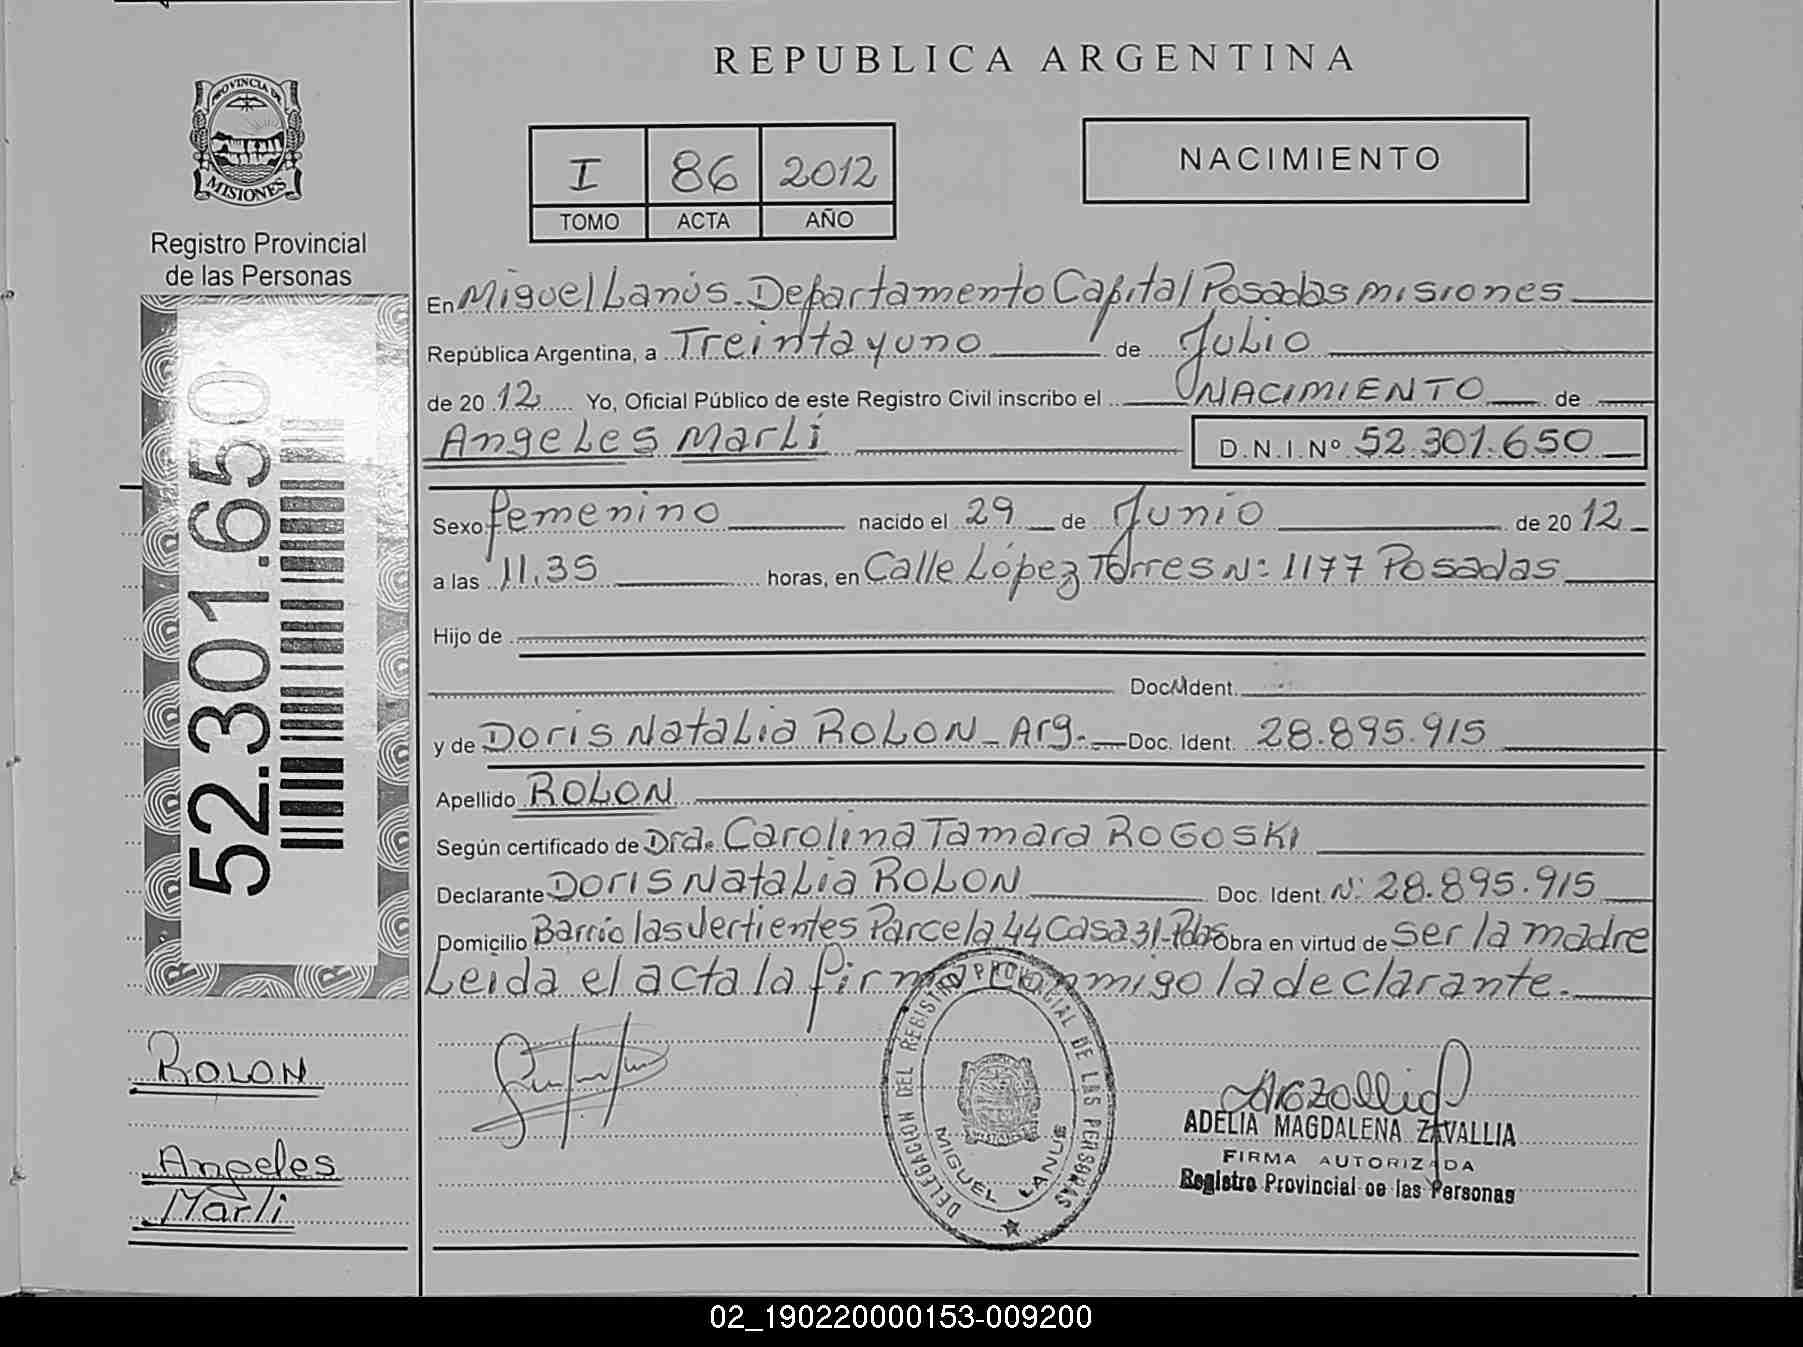 REPUBLICA ARGENTINA
PROVINCIA DE
MISIONES
Registro Provincial
de las Personas
I 86 2012
TOMO ACTA AÑO
NACIMIENTO
52.301.650
En Miguel Lanús - Departamento Capital Posadas misiones
República Argentina, a Treinta y uno de Julio
de 2012 Yo, Oficial Público de este Registro Civil inscribo el NACIMIENTO de
Angeles Marlí D.N.I.Nº 52.301.650
Sexo femenino nacido el 29 de Junio de 2012
a las 11.35 horas, en Calle López Torres Nº: 1177 Posadas
Hijo de
Doc. Ident.
y de Doris Natalia ROLON - Arg. - Doc. Ident. 28.895.915
Apellido ROLON
Según certificado de Dra. Carolina Tamara ROGOSKI
Declarante Doris Natalia ROLON Doc. Ident. Nº: 28.895.915
Domicilio Barrio las Vertientes Parcela 44 Casa 31-Pdas Obra en virtud de ser la madre
Leida el acta la firma conmigo la declarante.
ROLON
Angeles
Marli
DELEGACION DEL REGISTRO PROVINCIAL DE LAS PERSONAS
MIGUEL LANUS
ADELIA MAGDALENA ZAVALLIA
FIRMA AUTORIZADA
Registro Provincial de las Personas
02_190220000153-009200